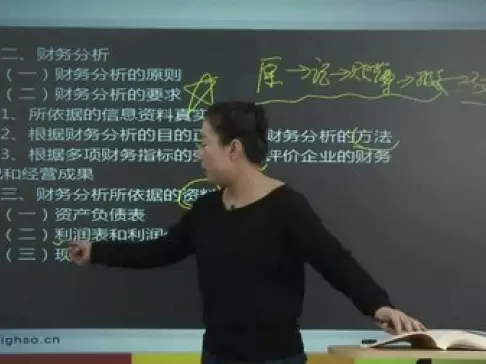 二、财务分析
（一）财务分析的原则
（二）财务分析的要求
1、所依据的信息资料真实
2、根据财务分析的目的正 财务分析的方法
3、根据多项财务指标的变 评价企业的财务
况和经营成果
三、财务分析所依据的资料
（一）资产负债表
（二）利润表和利润
（三）现
ighso.cn
原→记→账簿→报表→